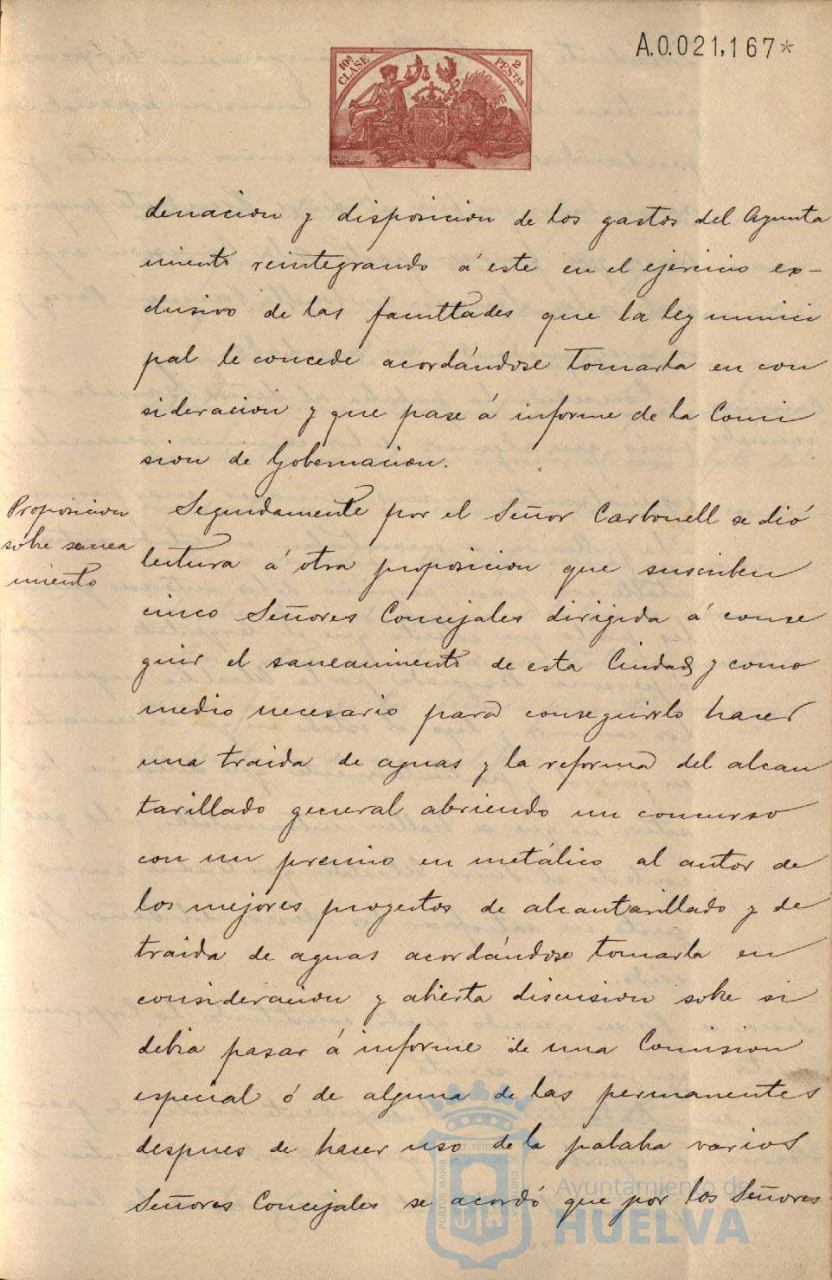 A.0.021,167*
10ª CLASE
2 PESTAS
denacion y disposicion de los gastos del Ayunta
miento reintegrando á este en el ejercicio ex-
clusivo de las facultades que la ley munici
pal le concede acordándose tomarla en con
sideracion y que pase á informe de la Comi
sion de Gobernacion.
Proposicion
sobre sanea
miento
Segundamente por el Señor Carbonell se dió
lectura á otra proposicion que suscriben
cinco Señores Concejales dirigida á conse
guir el saneamiento de esta Ciudad y como
medio necesario para conseguirlo hacer
una traida de aguas y la reforma del alcan
tarillado general abriendo un concurso
con un premio en metálico al autor de
los mejores proyectos de alcantarillado y de
traida de aguas acordándose tomarla en
consideracion y abierta discusion sobre si
debia pasar á informe de una Comision
especial ó de alguna de las permanentes
despues de hacer uso de la palabra varios
Señores Concejales se acordó que por los Señores
Ayuntamiento de
HUELVA